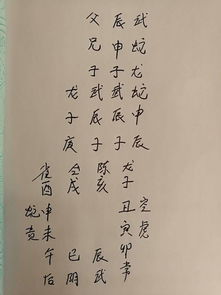 父 辰 武
兄 申 蛇
子 子 龙
龙 武 武 蛇
子 辰 辰 申
庚 子 子 辰
雀 合 陈 龙
酉 戌 亥 子
蛇 申 丑 空
贵 未 寅 虎
午 巳 辰 卯
后 阴 武 常